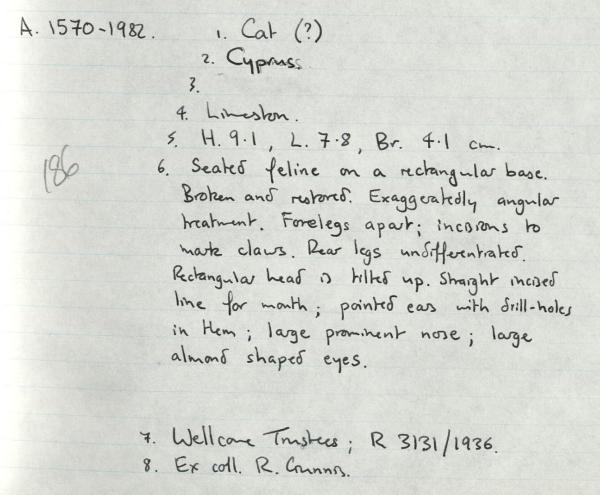 A. 1570-1982. 1. Cat (?)
2. Cyprus.
3.
4. Limeston.
5. H. 9.1, L. 7.8, Br. 4.1 cm.
186
6. Seated feline on a rectangular base.
Broken and restored. Exaggeratedly angular
treatment. Forelegs apart; incisions to
mark claws. Rear legs undifferentiated.
Rectangular head is tilted up. Straight incised
line for mouth; pointed ears with drill-holes
in them; large prominent nose; large
almond shaped eyes.
7. Wellcome Trustees; R 3131/1936.
8. Ex coll. R. Gunnis.